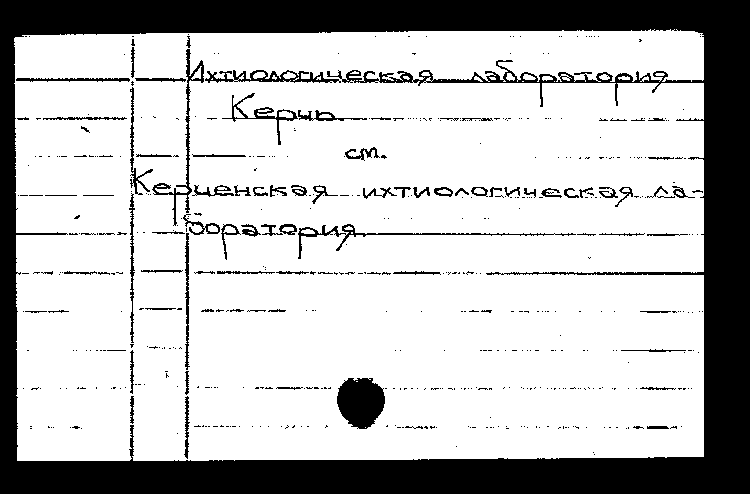 Ихтиологическая лаборатория
Керчь.
см.
Керченская ихтиологическая ла-
боратория.